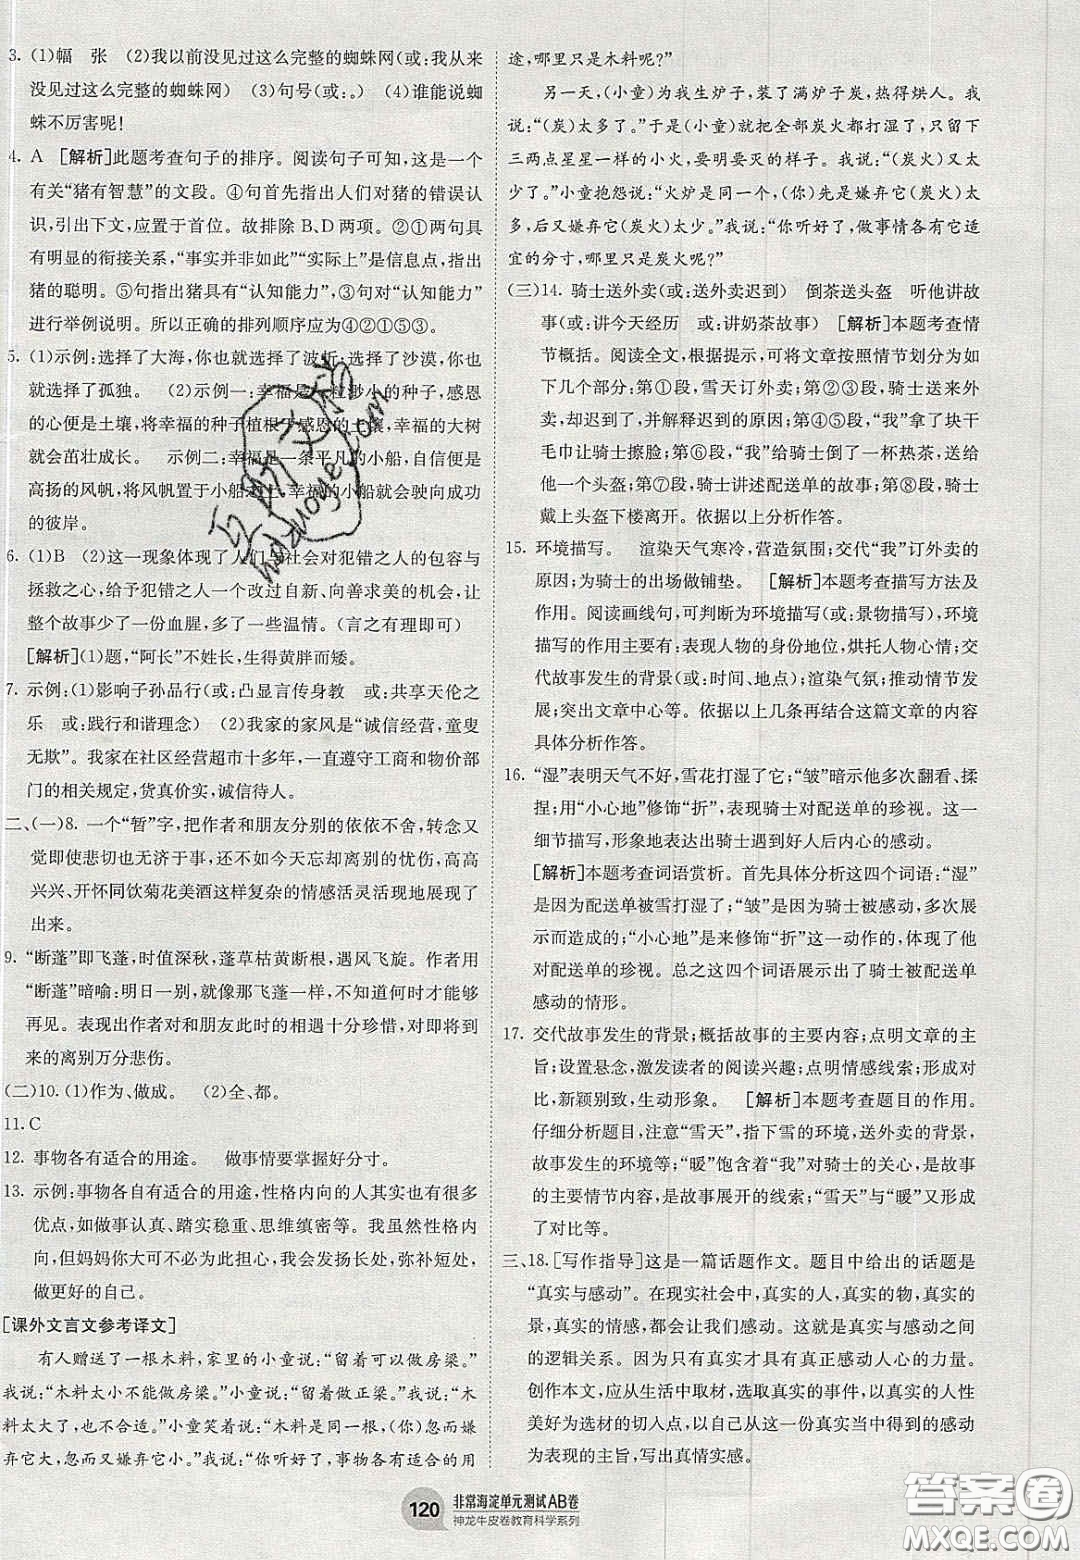 3. (1)幅　张　(2)我以前没见过这么完整的蜘蛛网(或:我从来
没见过这么完整的蜘蛛网)　(3)句号(或:。)　(4)谁能说蜘
蛛不厉害呢!
4. A　[解析]此题考查句子的排序。阅读句子可知，这是一个
有关“猪有智慧”的文段。④句首先指出人们对猪的错误认
识，引出下文，应置于首位。故排除B、D两项。②①两句具
有明显的衔接关系，“事实并非如此”“实际上”是信息点，指出
猪的聪明。⑤句指出猪具有“认知能力”，③句对“认知能力”
进行举例说明。所以正确的排列顺序应为④②①⑤③。
5. (1)示例:选择了大海，你也就选择了波折;选择了沙漠，你也
就选择了孤独。　(2)示例一:幸福是一粒渺小的种子，感恩
的心便是土壤，将幸福的种子植根于感恩的土壤，幸福的大树
就会茁壮成长。　示例二:幸福是一条平凡的小船，感恩便是
高扬的风帆，将风帆置于小船之上，幸福的小船就会驶向成功
的彼岸。
6. (1)B　(2)这一现象体现了人们与社会对犯错之人的包容与
拯救之心，给予犯错之人改过自新、努力变美的机会，让
整个故事少了一份血腥，多了一些温情。(言之有理即可)
[解析](1)题，“阿长”不姓长，生得黄胖而矮。
7. 示例:(1)影响子孙品行(或:凸显言传身教　或:共享天伦之
乐　或:践行和谐理念)　(2)我家的家风是“诚信经营，童叟
无欺”。我家在社区经营超市十多年，一直遵守工商和物价部
门的相关规定，货真价实，诚信待人。
二、(一)8. 一个“暂”字，把作者和朋友分别的依依不舍，转念又
觉即使悲切也无济于事，还不如今天忘却离别的忧伤，高高
兴兴、开怀同饮菊花美酒这样复杂的情感活灵活现地展现了
出来。
9. “断蓬”即飞蓬，时值深秋，蓬草枯黄断根，遇风飞旋。作者用
“断蓬”暗喻:明日一别，就像那飞蓬一样，不知何时才能够
再见。表现出作者对和朋友此时的相遇十分珍惜，对即将到
来的离别万分悲伤。
(二)10.(1)作为、做成。　(2)全、都。
11.C
12. 事物各有适合的用途。　做事情要掌握好分寸。
13. 示例:事物各自有适合的用途，性格内向的人其实也有很多
优点，如做事认真、踏实稳重、思维缜密等。我虽然性格内
向，但妈妈你大可不必这样担心，我会发扬长处，弥补短处，
做更好的自己。
[课外文言文参考译文]
有人赠送了一根木料，家里的小童说:“留着可以做房梁。”
我说:“木料太小不能做房梁。”小童说:“留着做正梁。”我说:“木
料太大了，也不合适。”小童笑着说:“木料是同一根，(你)忽而又
嫌弃它大，忽而又嫌弃它小。”我说:“你听好了，事物各有它的用
途，哪里只是木料呢?”
另一天，(小童)为我生炉子，装了满炉子炭，热得烘人。我
说:“(炭)太多了。”于是(小童)就把全部炭火都打湿了，只留下
三两点星星一样的小火，要明要灭的样子。我说:“(炭火)又太
少了。”小童抱怨说:“火炉是同一个，(你)先是嫌弃它(炭火)太
多，后又嫌弃它(炭火)太少。”我说:“你听好了，做事情各有它适
宜的分寸，哪里只是炭火呢?”
(三)14. 骑士送外卖(或:送外卖迟到)　倒茶送头盔　听他讲故
事(或:讲今天经历　或:讲奶茶故事)　[解析]本题考查情
节概括。阅读全文，根据提示，可将文章按照情节划分为如
下几个部分:第①段，雪天订外卖;第②③段，骑士送来外
卖，却迟到了，并解释迟到的原因;第④⑤段，“我”拿了块干
毛巾让骑士擦脸;第⑥段，“我”给骑士倒了一杯热茶，送给
他一个头盔;第⑦段，骑士讲述配送单的故事;第⑧段，骑士
戴上头盔下楼离开。依据以上分析作答。
15. 环境描写。　渲染天气寒冷，营造氛围;交代“我”订外卖的
原因;为骑士的出场做铺垫。　[解析]本题考查描写方法及
作用。阅读画线句，可判断为环境描写(或:景物描写)，环境
描写的作用主要有:表现人物的身份地位，烘托人物心情;交
代故事发生的背景(或:时间、地点);渲染气氛;推动情节发
展;突出文章中心等。依据以上几条再结合这篇文章的内容
具体分析作答。
16. “湿”表明天气不好，雪花打湿了它;“皱”暗示他多次翻看、揉
捏;用“小心地”修饰“折”，表现骑士对配送单的珍视。这一
细节描写，形象地表达出骑士遇到好人后内心的感动。
[解析]本题考查词语赏析。首先具体分析这四个词语:“湿”
是因为配送单被雪打湿了;“皱”是因为骑士被感动，多次展
示而造成的;“小心地”是来修饰“折”这一动作的，体现了他
对配送单的珍视。总之这四个词语展示出了骑士被配送单
感动的情形。
17. 交代故事发生的背景;概括故事的主要内容;点明文章的主
旨;设置悬念，激发读者的阅读兴趣;点明情感线索;形成对
比，新颖别致，生动形象。　[解析]本题考查题目的作用。
仔细分析题目，注意“雪天”，指下雪的环境，送外卖的背景，
故事发生的环境等;“暖”包含着“我”对骑士的关心，是文章
的主要情节内容，是故事展开的线索;“雪天”与“暖”又形成
了对比等。
三、18.[写作指导]这是一篇话题作文。题目中给出的话题是
“真实与感动”。在现实社会中，真实的人，真实的物，真实的
景，真实的情感，都会让我们感动。这就是真实与感动之间
的逻辑关系。因为只有真实才具有真正感动人心的力量。
创作本文，应从生活中取材，选取真实的事件，以真实的人性
美好为选材的切入点，以自己从这一份真实当中得到的感动
为表现的主旨，写出真情实感。
120
非常海淀单元测试AB卷
神龙牛皮卷教育科学系列
答案圈
MXQE.COM